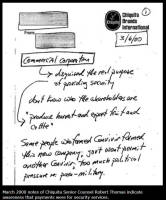 Chiquita
Brands
International
3/6/00
Commercial corporation
disguised the real purpose
of providing security
don't know who the shareholders are
produce banana and export fruit and
coffee
Some people who formed Convivir formed
this new company, govt won't permit
another Convivir too much political
pressure re: para-military.
March 2000 notes of Chiquita Senior Counsel Robert Thomas indicate
awareness that payments were for security services.